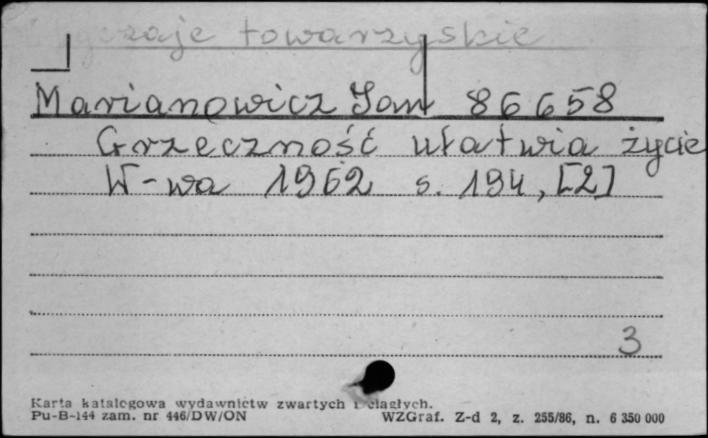 towarzyskie
Marianowicz Jan 86658
Grzeczność ułatwia życie
W-wa 1962 s. 194, [2]
3
Karta katalogowa wydawnictw zwartych i ciągłych.
Pu-B-144 zam. nr 446/DW/ON WZGraf. Z-d 2, z. 255/86, n. 6 350 000